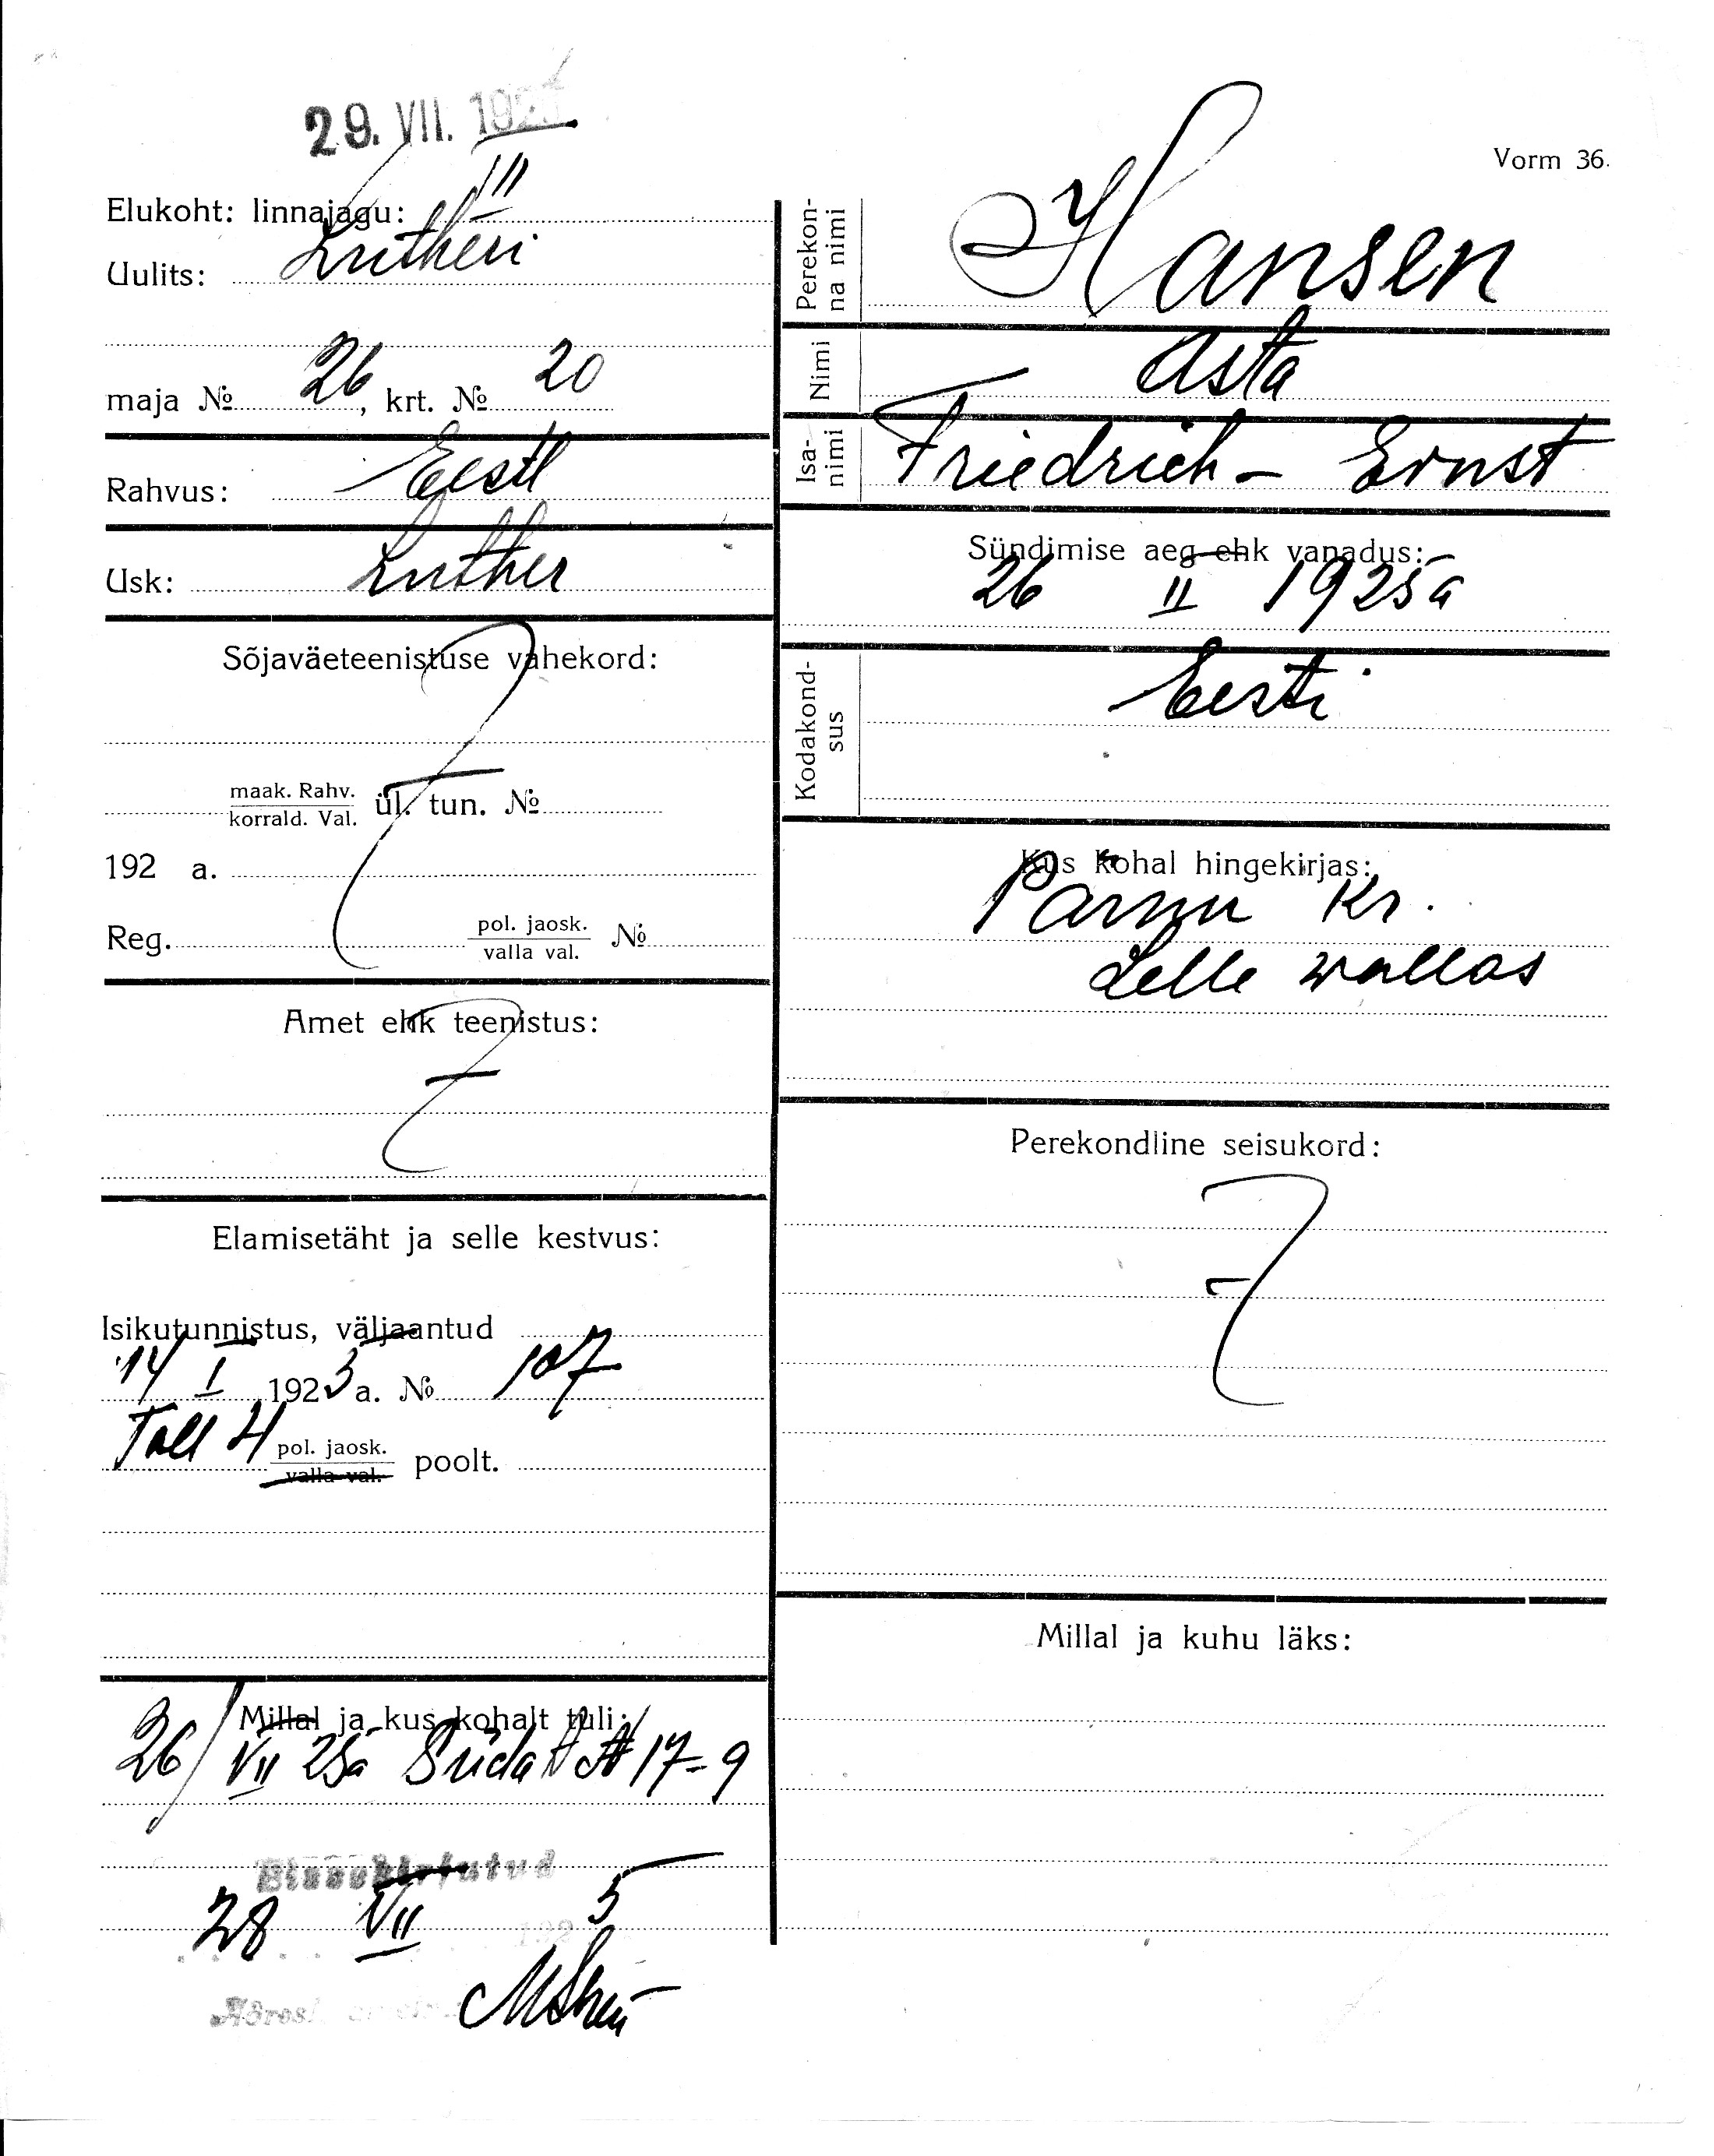 29. VII. 192
Vorm 36.
Elukoht: linnajagu: III
Uulits: Lutheri
maja № 26, krt. № 20
Rahvus: Eesti
Usk: Luther
Sõjaväeteenistuse vahekord:
maak. Rahv.
korrald. Val. ül. tun. №
192 a.
Reg. pol. jaosk.
valla val. №
Amet ehk teenistus:
Elamisetäht ja selle kestvus:
Isikutunnistus, väljaantud
14 I 1923 a. № 107
Tall 4 pol. jaosk.
valla val. poolt.
Millal ja kus kohalt tuli:
26/VII 25a Süda t № 17-9
Sissekirjutud
28 VII 192 5
Perekon-
na nimi Hansen
Nimi Asta
Isa-
nimi Friedrich-Ernst
Sündimise aeg ehk vanadus:
26 II 1925 a
Kodakond-
sus Eesti
Kus kohal hingekirjas:
Pärnu Kr.
Lelle wallas
Perekondline seisukord:
Millal ja kuhu läks: